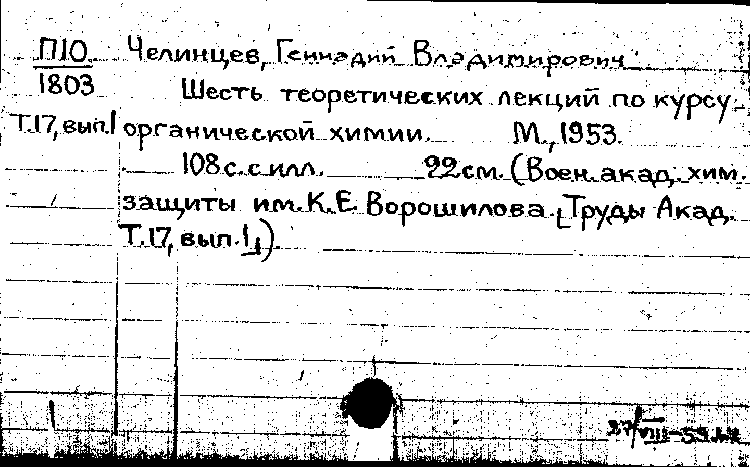 П10 Челинцев, Геннадий Владимирович
1803 Шесть теоретических лекций по курсу
Т.17, вып.1 органической химии. М., 1953.
108 с. с илл. 22 см. (Воен. акад. хим.
защиты им. К.Е. Ворошилова. [Труды Акад.
Т.17, вып.1])